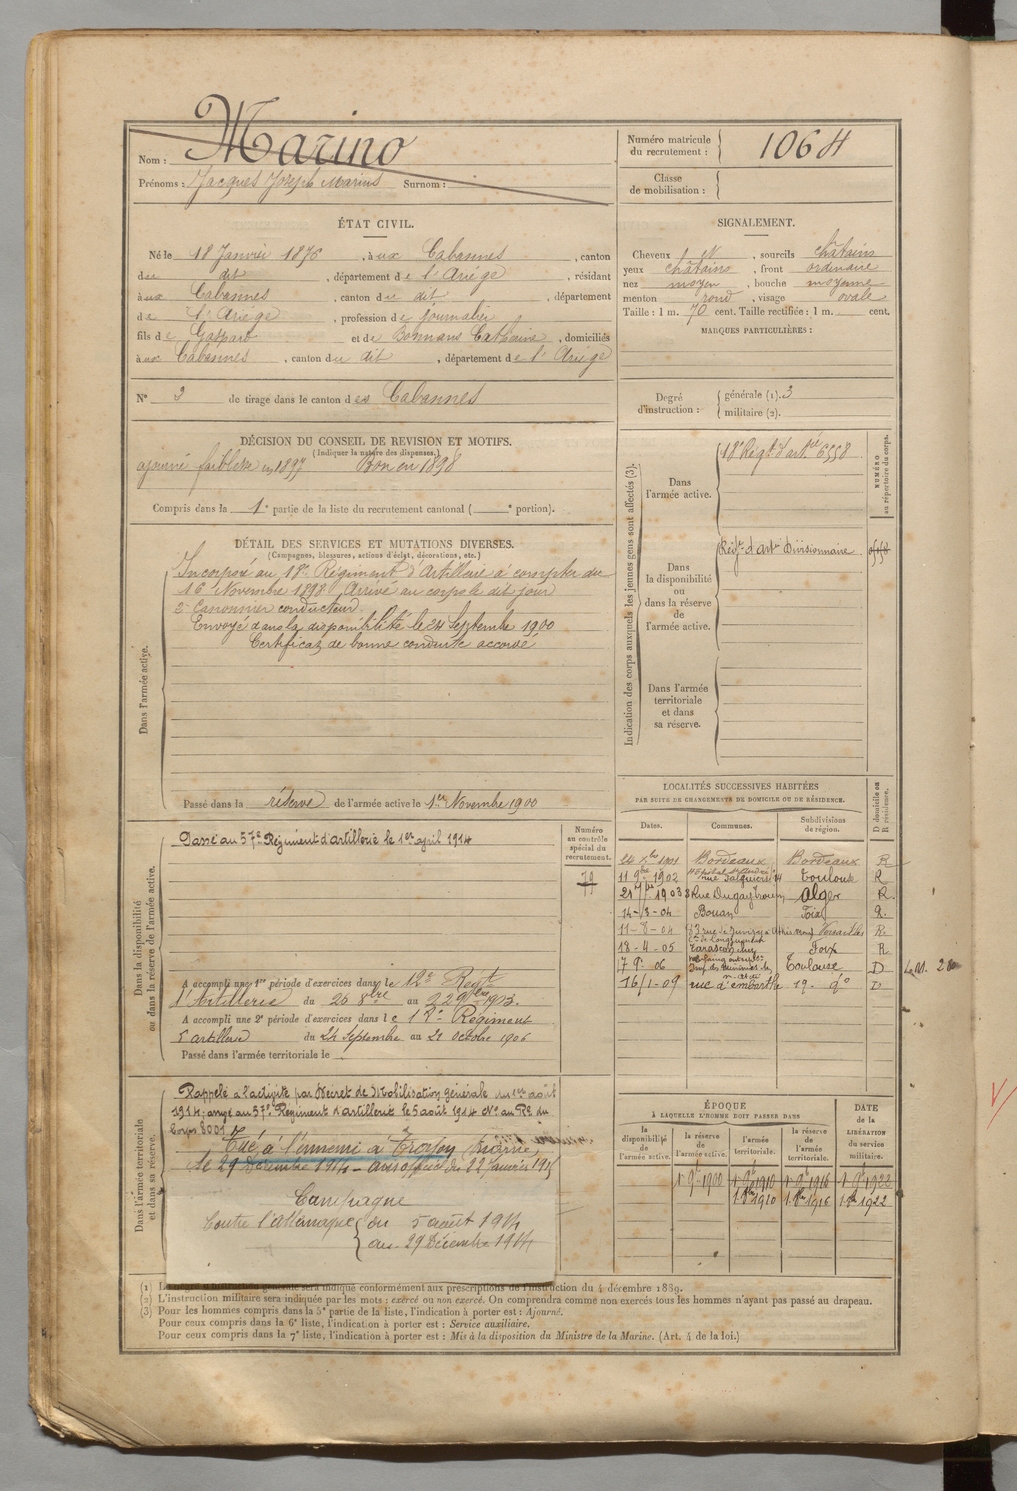 Nom : Marino
Prénoms : Jacques Joseph Marius Surnom :
Numéro matricule
du recrutement : 1064
Classe
de mobilisation :
ÉTAT CIVIL.
Né le 18 Janvier 1876, à ux Cabannes, canton
du dit, département de l'Ariège, résidant
à ux Cabannes, canton du dit, département
de l'Ariège, profession de journalier
fils de Gaspard et de Bonnans Catherine, domiciliés
à ux Cabannes, canton du dit, département de l'Ariège
N° 3 de tirage dans le canton des Cabannes
SIGNALEMENT.
Cheveux et, sourcils châtains
yeux châtains, front ordinaire
nez moyen, bouche moyenne
menton rond, visage ovale
Taille : 1 m. 70 cent. Taille rectifiée : 1 m. cent.
MARQUES PARTICULIÈRES :
Degré
d'instruction :
générale (1). 3
militaire (2).
DÉCISION DU CONSEIL DE REVISION ET MOTIFS.
(Indiquer la nature des dispenses.)
ajourné faiblesse en 1897 Bon en 1898
Compris dans la 1e partie de la liste du recrutement cantonal ( e portion).
DÉTAIL DES SERVICES ET MUTATIONS DIVERSES.
(Campagnes, blessures, actions d'éclat, décorations, etc.)
Dans l'armée active.
Incorporé au 18e Régiment d'Artillerie à compter du
16 Novembre 1898 Arrivé au corps le dit jour
2e Canonnier conducteur
Envoyé dans la disponibilité le 24 Septembre 1900
Certificat de bonne conduite accordé
Passé dans la réserve de l'armée active le 1er Novembre 1900
Indication des corps auxquels les jeunes gens sont affectés (3).
NUMÉRO
au répertoire du corps.
Dans
l'armée active.
18e Régt d'artie 6558
Dans
la disponibilité
ou
dans la réserve
de
l'armée active.
Régt d'artie Divisionnaire
Dans l'armée
territoriale
et dans
sa réserve.
LOCALITÉS SUCCESSIVES HABITÉES
PAR SUITE DE CHANGEMENTS DE DOMICILE OU DE RÉSIDENCE.
Dates. Communes. Subdivisions
de région.
D domicile ou
R résidence.
24 Xbre 1901 Bordeaux Bordeaux R
11 9bre 1902 Toulouse R
21 1903 8 Rue Dugay Trouin Alger R
14-3-04 Bouan Foix R.
11-8-04 Versailles R.
18-4-05 Tarascon Foix R
7 9e 06 Toulouse D
16/1-09 rue d'embarthe 19. do D
Dans la disponibilité
ou dans la réserve de l'armée active.
Numéro
au contrôle
spécial du
recrutement.
79
Passé au 57e Régiment d'artillerie le 1er april 1914
A accompli une 1re période d'exercices dans le 12e Regt
d'Artillerie du 26 8bre au 22 9bre 1903.
A accompli une 2e période d'exercices dans le 18e Régiment
d'artillerie du 24 Septembre au 21 octobre 1906
Passé dans l'armée territoriale le
Dans l'armée territoriale
et dans sa réserve.
Rappelé à l'activité par Décret de Mobilisation générale du 1er août
1914; arrivé au 57e Régiment d'artillerie le 5 août 1914 No au Rre du
Corps 8001
Tué à l'ennemi à Troyon Marne,
le 29 Décembre 1914 - avis officiel du 22 janvier 1915
Campagne
Contre l'allemagne
du 5 août 1914
au 29 Décembre 1914
ÉPOQUE
À LAQUELLE L'HOMME DOIT PASSER DANS
la
disponibilité
de
l'armée active.
la réserve
de
l'armée active.
l'armée
territoriale.
la réserve
de
l'armée
territoriale.
DATE
de la
LIBÉRATION
du service
militaire.
1er 9bre 1900 1er 9bre 1910 1er 9bre 1916 1er 9bre 1922
1. 8bre 1910 1. 8bre 1916 1. 8bre 1922
(1) Le degré d'instruction générale sera indiqué conformément aux prescriptions de l'instruction du 4 décembre 1889.
(2) L'instruction militaire sera indiquée par les mots : exercé ou non exercé. On comprendra comme non exercés tous les hommes n'ayant pas passé au drapeau.
(3) Pour les hommes compris dans la 5e partie de la liste, l'indication à porter est : Ajourné.
Pour ceux compris dans la 6e liste, l'indication à porter est : Service auxiliaire.
Pour ceux compris dans la 7e liste, l'indication à porter est : Mis à la disposition du Ministre de la Marine. (Art. 4 de la loi.)